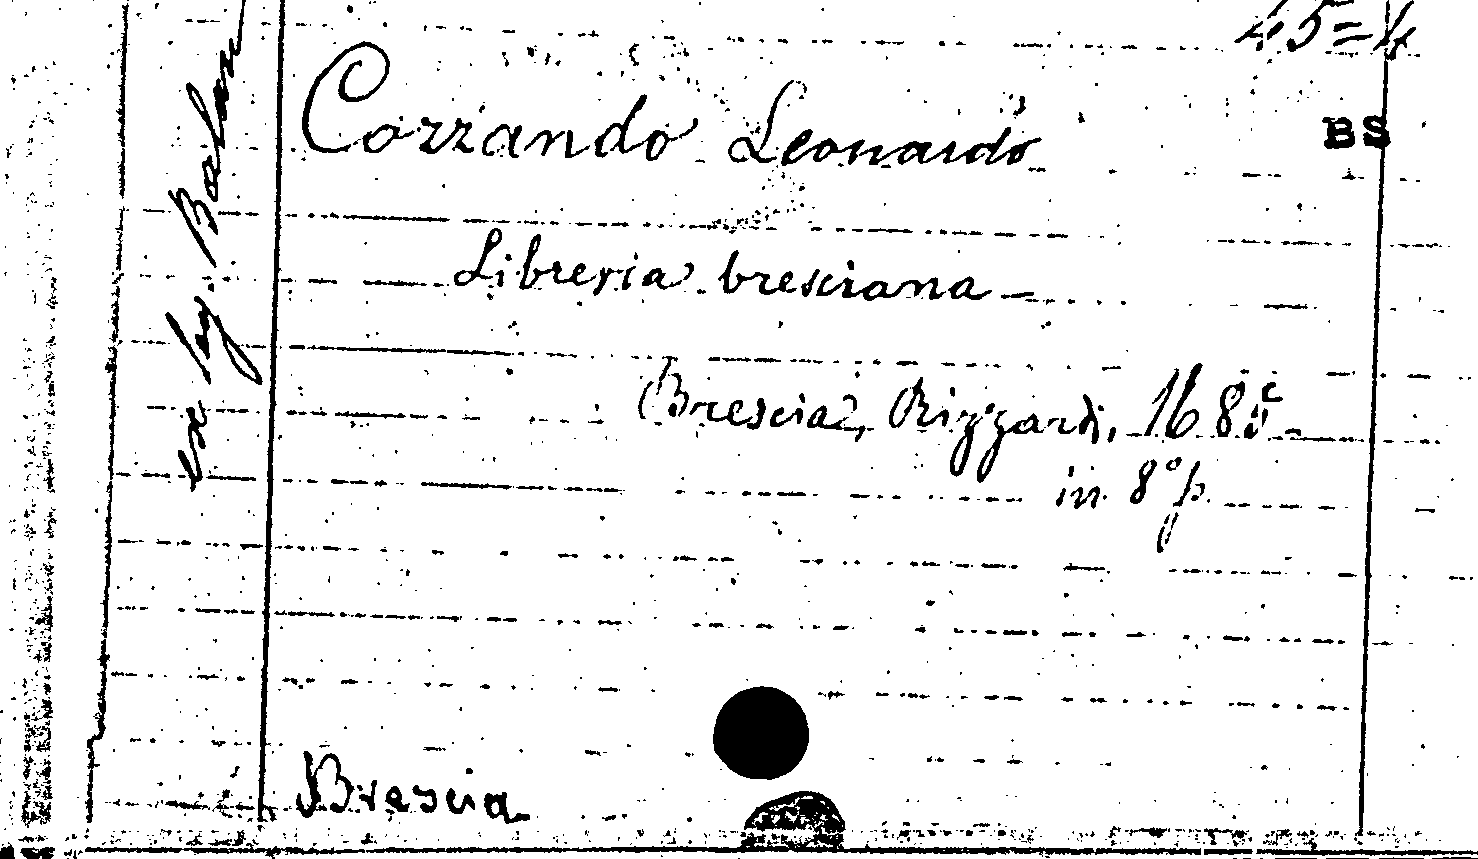 45=4
Cozzando Leonardo
BS
Libreria bresciana -
Brescia, Rizzardi, 1685 -
in 8° p.
Brescia
ex lg.